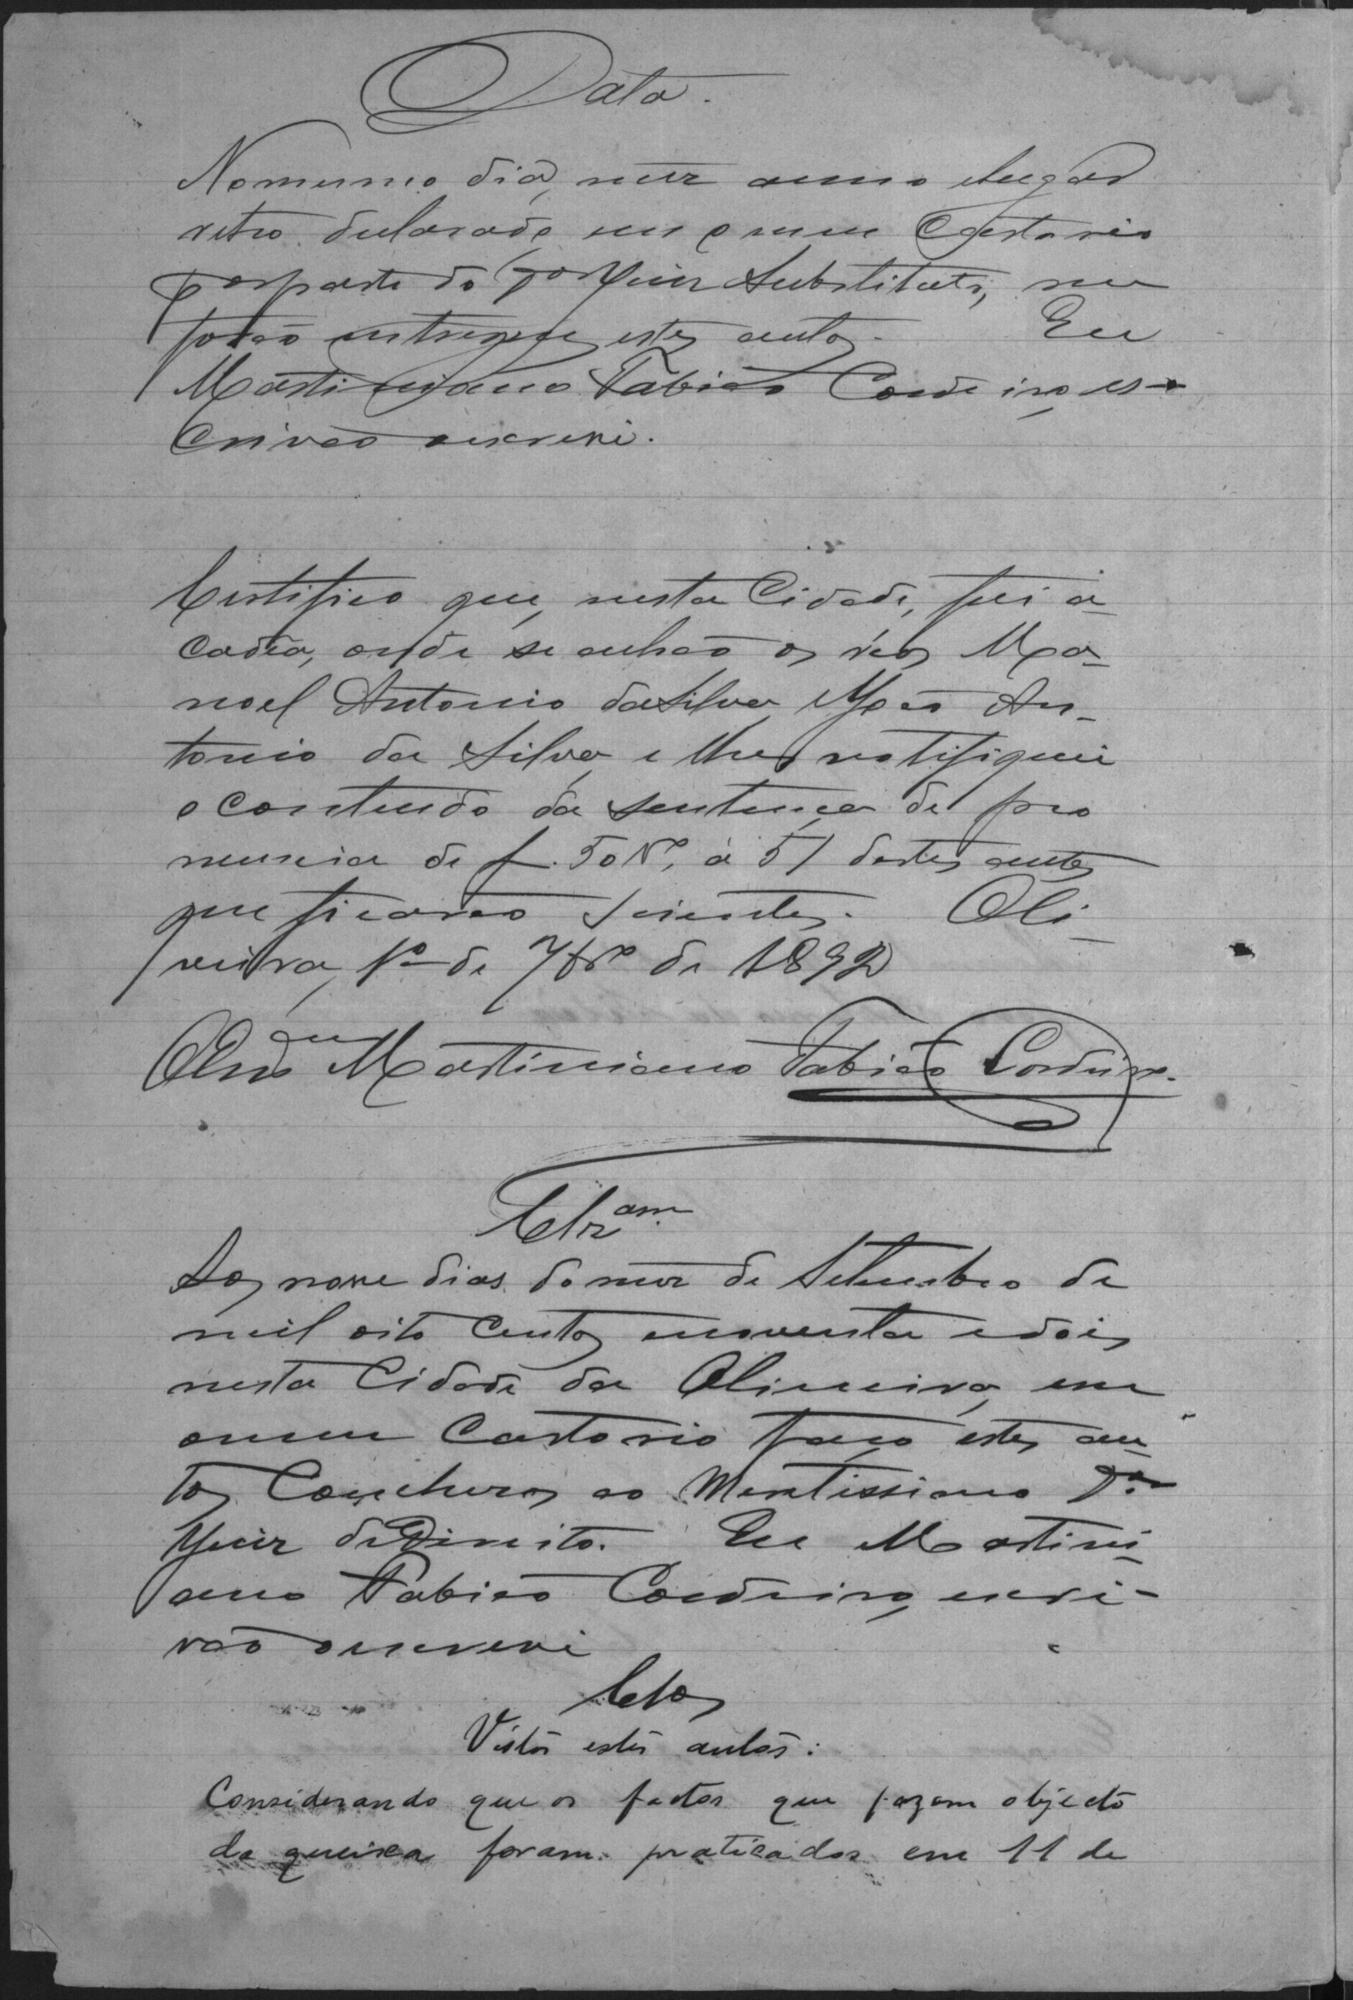 Data.
No mesmo dia, mez anno e lugar
retro declarado em o meu Cartorio
por parte do Dor Juiz Substituto, me
forão entregues estes autos. Eu
Martiniano Fabião Cordeiro es-
crivão o escrevi.
Certifico que, nesta Cidade, fui a
cadêa, onde se achão os réos Ma-
noel Antonio da Silva e João An-
tonio da Silva e lhes notifiquei
o conteudo da sentença de pro
nuncia de f. 50 Vº, á 51 destes autos
que ficarão scientes. Oli-
veira, 1º de 7brº de 1892
O Escram Martiniano Fabião Cordeiro.
Clzam
Aos nove dias do mez de Setembro de
mil oito centos e noventa e dois
nesta Cidade da Oliveira, em
o meu Cartorio faço estes au-
tos Conclusos ao Meritissimo Dor
Juiz de Direito. Eu Martini-
ano Fabião Cordeiro, escri-
vão o escrevi
Clos
Vistos estes autos:
Considerando que os factos que fazem objecto
da queixa foram praticados em 11 de